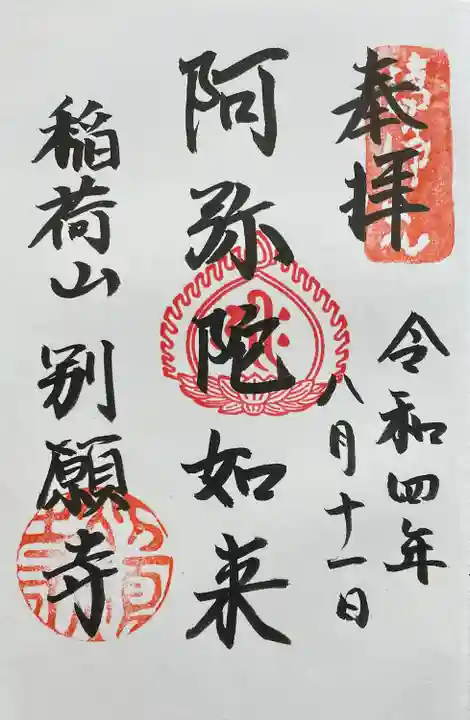 奉拝
令和四年
八月十一日
阿弥陀如来
稲荷山 別願寺